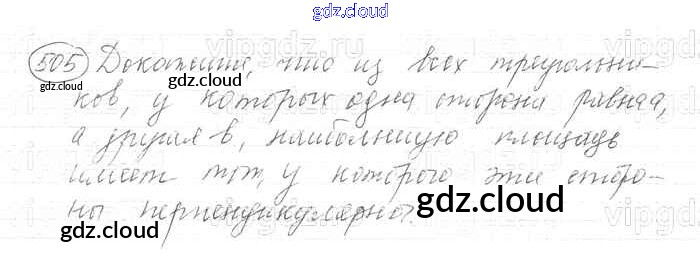 gdz.cloud
505 Докажите, что из всех треугольни-
ков, у которых одна сторона равна a,
а другая b, наибольшую площадь
имеет тот, у которого эти сторо-
ны перпендикулярны.
gdz.cloud
gdz.cloud
gdz.cloud
gdz.cloud